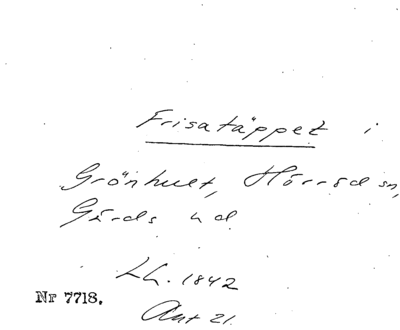 Frisatäppet i
Grönhult, Hörröd sn,
Gärds hd
LH. 1842
Nr 7718.
Akt 21.